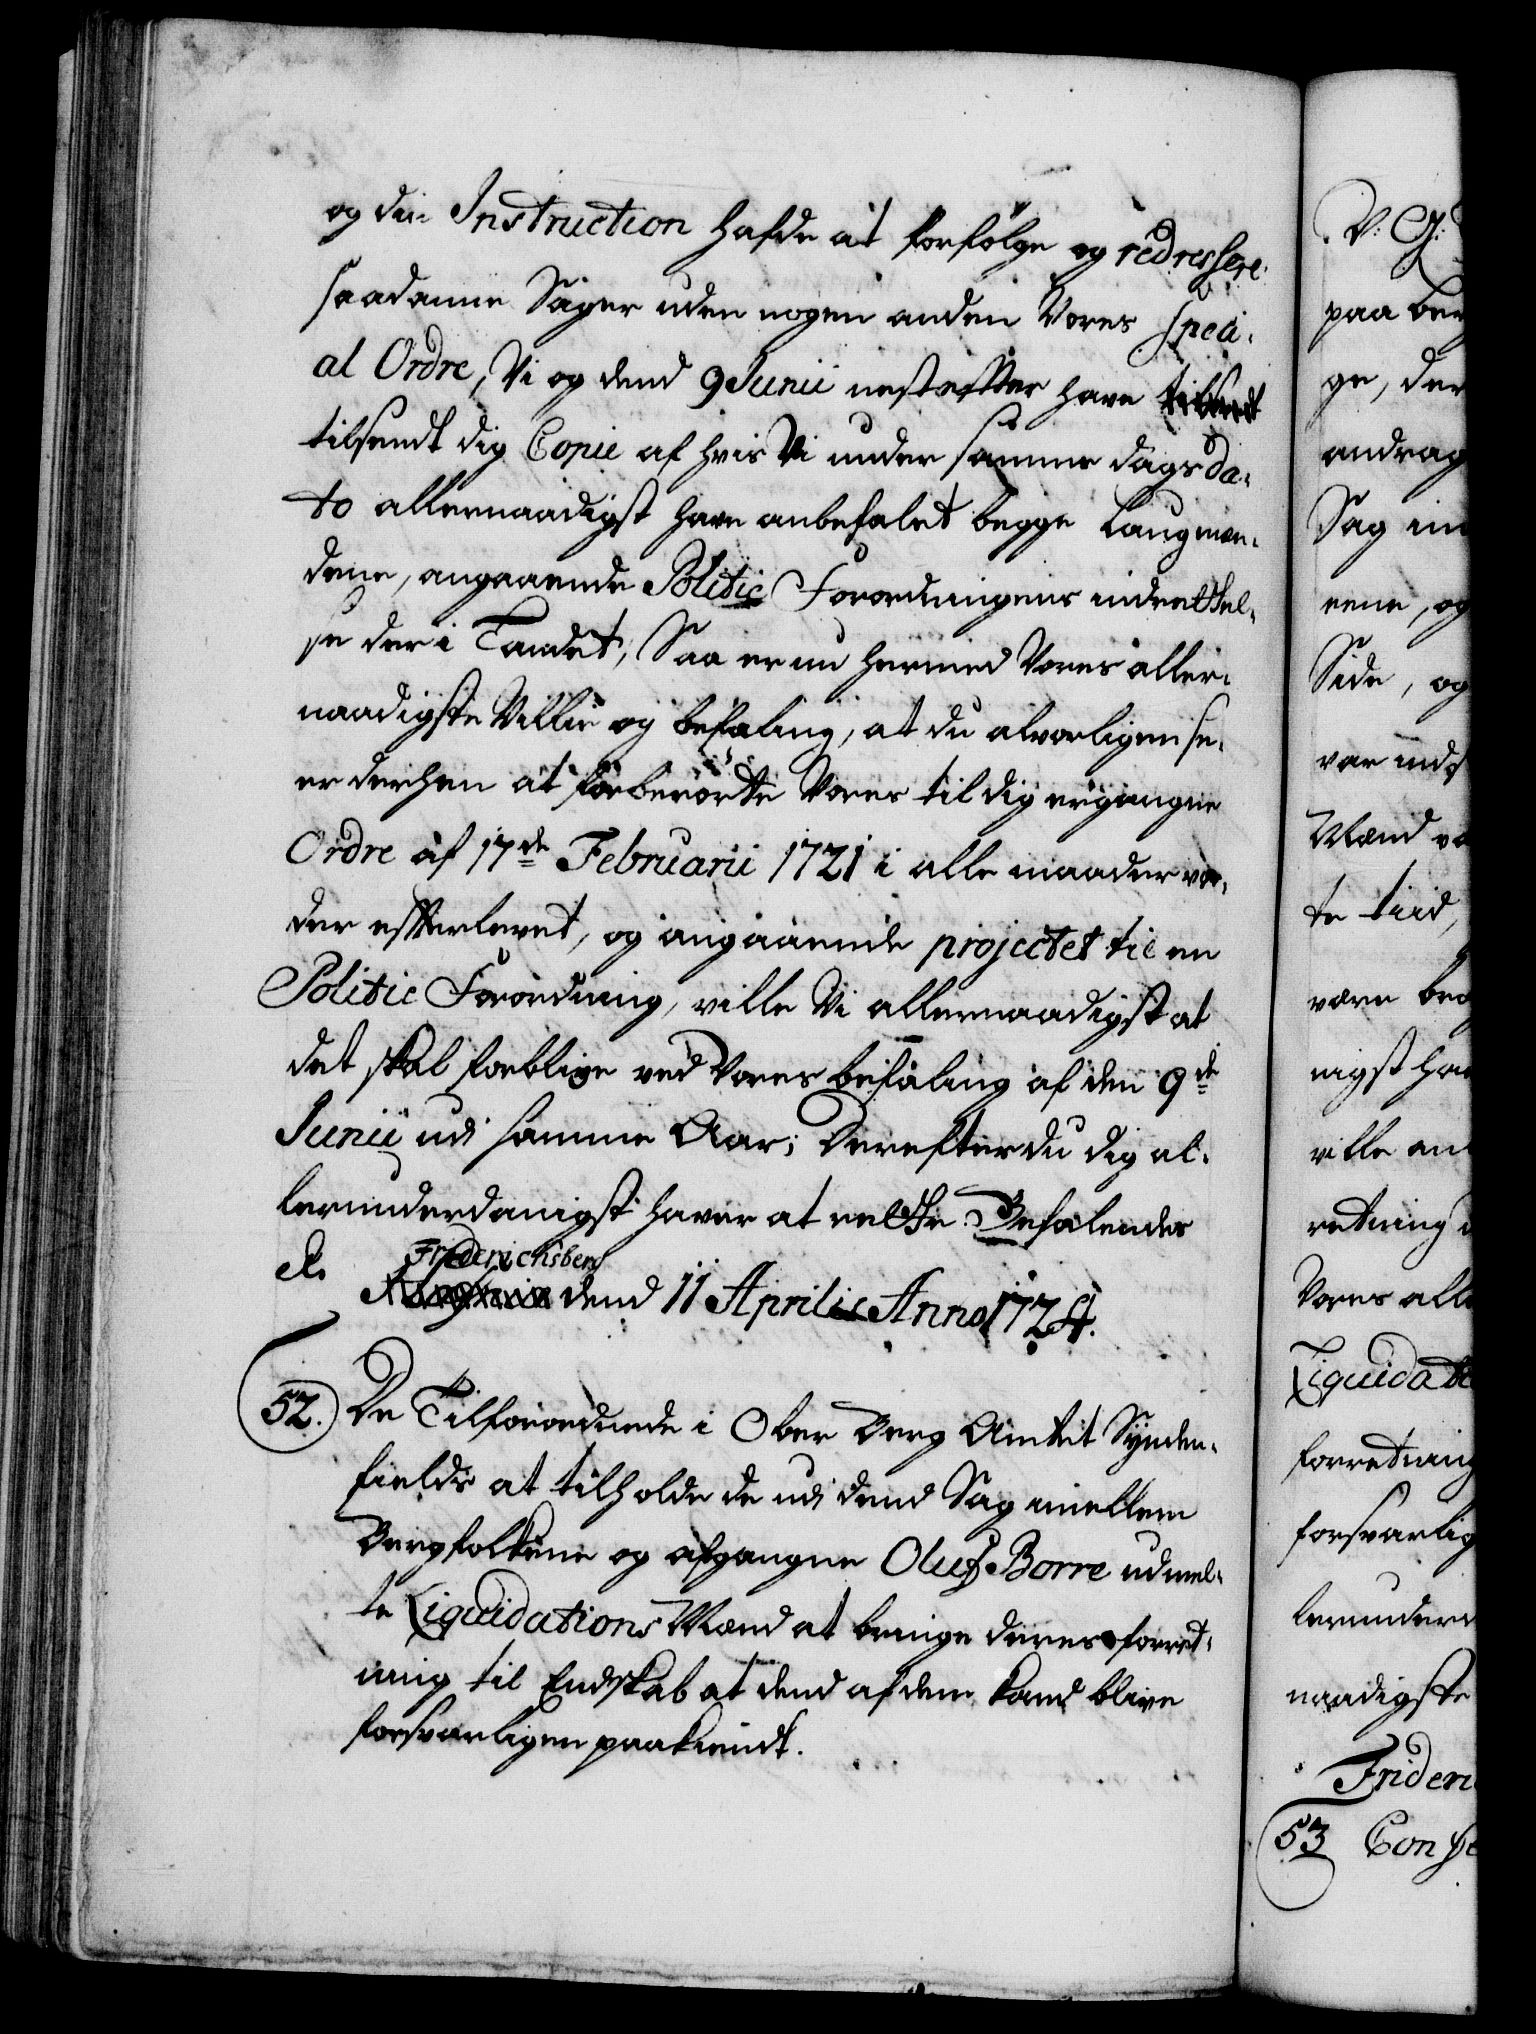 og din Instruction hafde at forfølge og redressere
saadanne Sager uden nogen anden Vores speci-
al Ordre, Vi og dend 9 Junii nestefter have tilsendt
tilsendt dig Copie af hvis Vi under samme dags da-
to allernaadigst have anbefalet begge Laugmæn-
dene, angaaende Politie Forordningens indrettel-
se der i Landet, Saa er nu hermed Vores aller-
naadigste Villie og befaling, at du alvorligen se-
er derhen at forberørte Vores til dig ergangne
Ordre af 17de Februarii 1721 i alle maader vor-
der efterlevet, og angaaende projectet til en
Politie Forordning, ville Vi allernaadigst at
det skal forblive ved Vores befaling af den 9de
Junii udi samme Aar; Derefter du dig al-
lerunderdanigst haver at rette. Befalendes
Friderichsberg
dend 11 Aprilis Anno 1724.
52. De Tilforordnede i Ober Berg Amtet Synden-
fields at tilholde de udi dend Sag imellem
Bergfolkene og afgangne Oluf Borre udmel-
te Liquidations Mænd at bringe deres forret-
ning til Endskab at dend af dem kand blive
forsvarligen paakiendt.
V: G:
paa ber
ge, der
andrag
Sag im
eene, og
Side, og
var inds
Mænd
te tiid,
være
nigst
ville
retning
Vores alle
Liquidati
forretning
forsvarlig
lerunder
naadigste
Frideric
53 Con